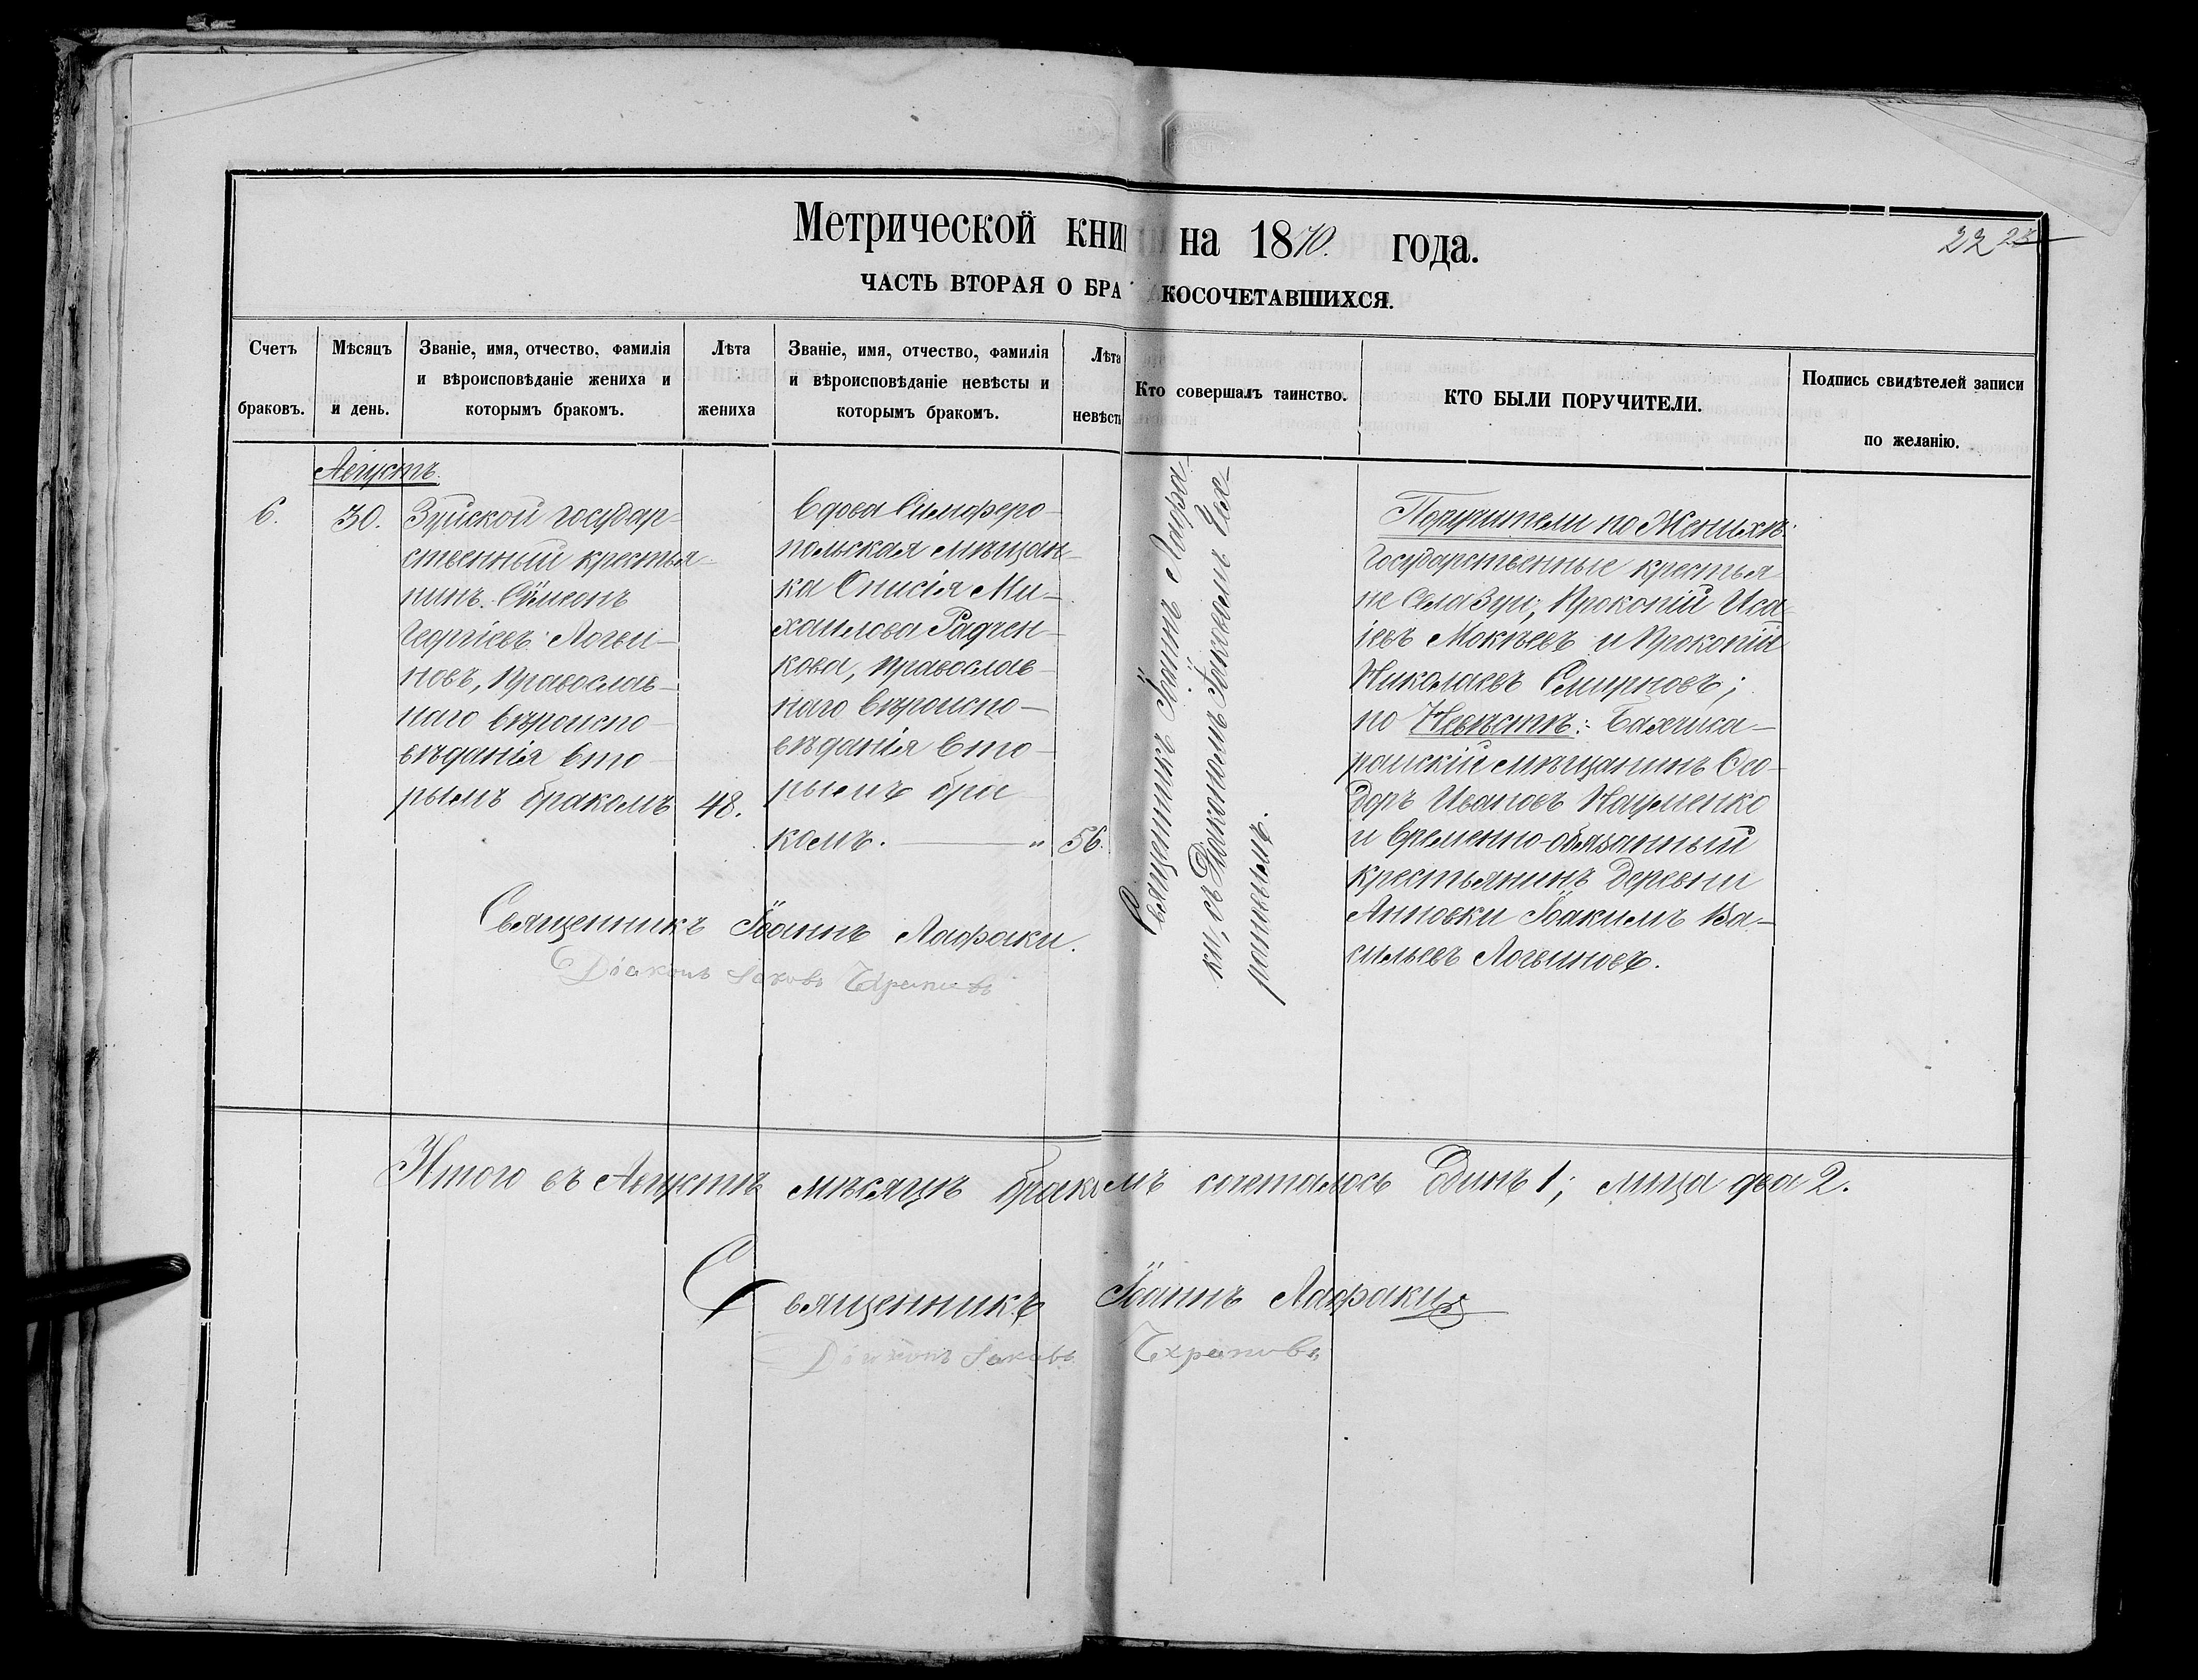 Метрической книги на 1870. года.
22 23
ЧАСТЬ ВТОРАЯ О БРАКОСОЧЕТАВШИХСЯ.
Счетъ браковъ.
Мѣсяцъ и день.
Званіе, имя, отчество, фамилія
и вѣроисповѣданіе жениха и
которымъ бракомъ.
Лѣта жениха
Званіе, имя, отчество, фамилія
и вѣроисповѣданіе невѣсты и
которымъ бракомъ.
Лѣта невѣсты
Кто совершалъ таинство.
КТО БЫЛИ ПОРУЧИТЕЛИ.
Подпись свидѣтелей записи
по желанію.
Августъ.
6.
30.
Зуйской государ-
ственный крестья-
нинъ Сѵмеонъ
Георгіевъ Логви-
новъ, Православ-
наго вѣроиспо-
вѣданія вто-
рымъ бракомъ
48.
Вдова Симферо-
польская мѣщан-
ка Онисія Ми-
хаилова Радчен-
кова, Православ-
наго вѣроиспо-
вѣданія вто-
рымъ бра-
комъ. — "
56.
Священникъ Іоаннъ Лафа-
ки, съ Діакономъ Іаковомъ Ехт-
рановымъ.
Поручители по Женихѣ:
Государственные крестья-
не села Зуи, Прокопій Иса-
іевъ Мокѣевъ и Прокопій
Николаевъ Смирновъ;
по Невѣстѣ: Бахчиса-
райскій мѣщанинъ Ѳео-
доръ Ивановъ Науменко
и временно-обязанный
крестьянинъ деревни
Анновки Іоакимъ Ва-
сильевъ Логвиновъ.
Священникъ Іоаннъ Лафаки.
Діаконъ Іаковъ
Итого въ Августѣ мѣсяцѣ бракомъ сочеталось Одинъ 1; лица два 2.
Священникъ Іоаннъ Лафаки
Діаконъ Іаковъ